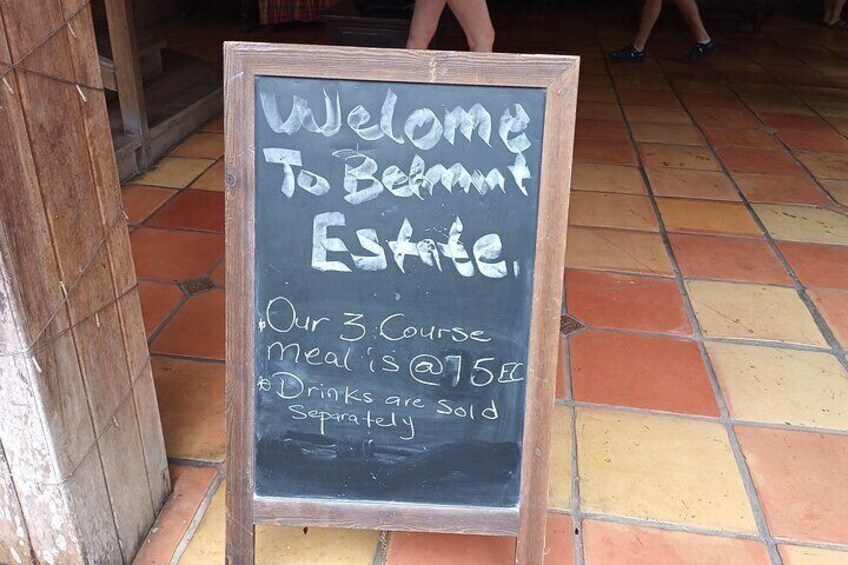 Welcome
To Belmont
Estate.
Our 3 Course
meal is @ 75 EC
Drinks are sold
separately